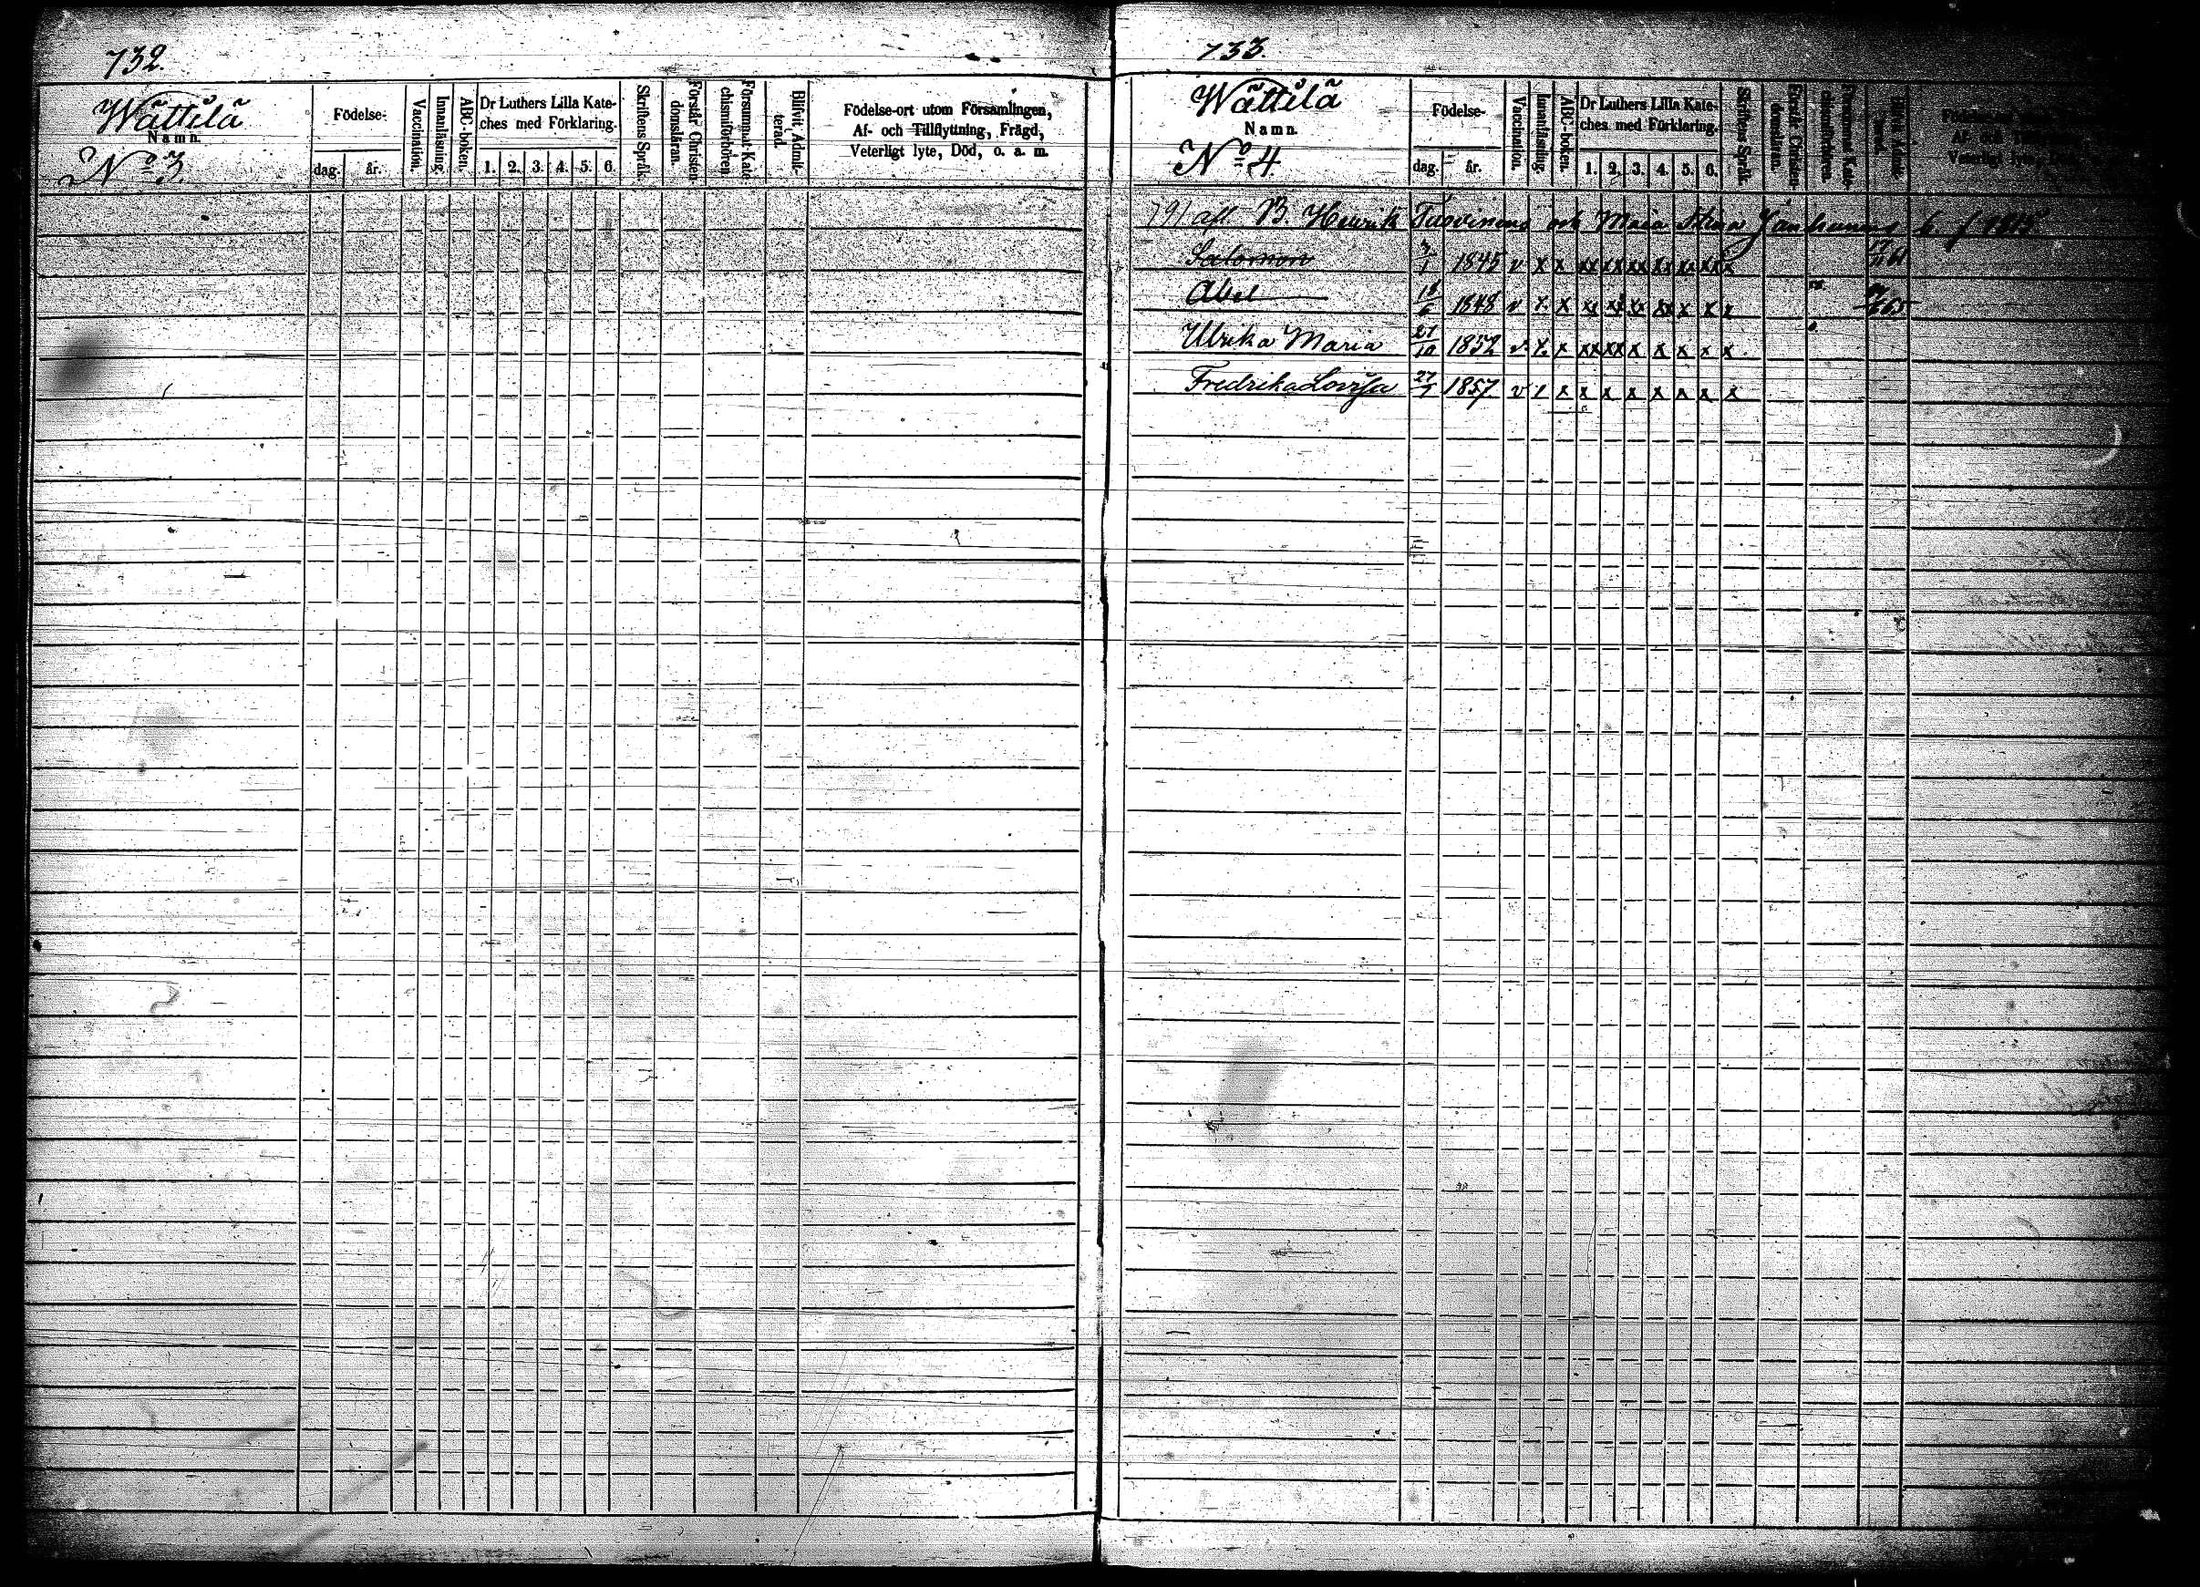 732.
Wättilä
Namn.
No 3.
Födelse-
dag. år.
Vaccination.
Innanläsning.
ABC-boken.
Dr Luthers Lilla Kate-
ches med Förklaring.
1. 2. 3. 4. 5. 6.
Skriftens Språk.
Förstår Christen-
domsläran.
Försummat Kate-
chismiförhören.
Blifvit Admit-
terad.
Födelse-ort utom Församlingen,
Af- och Tillflyttning, Frägd,
Veterligt lyte, Död, o. a. m.
733.
Wättilä
Namn.
No 4
Födelse-
dag. år.
Vaccination.
Innanläsning.
ABC-boken.
Dr Luthers Lilla Kate-
ches med Förklaring.
1. 2. 3. 4. 5. 6.
Skriftens Språk.
Förstår Christen-
domsläran.
Försummat Kate-
chismiförhören.
Veterligt lyte
791 afl B. Henrik Tuovinens och Maria Jänhunens
Salomon 7/1 1845 v x x xx xx xx xx xx xx x
Abel 18/6 1848 v x x xx xx xx xx x x x
Ulrika Maria 21/10 1852 v x x xx xx x x x x x
Fredrika Lovisa 27/7 1857 v x x x x x x x x